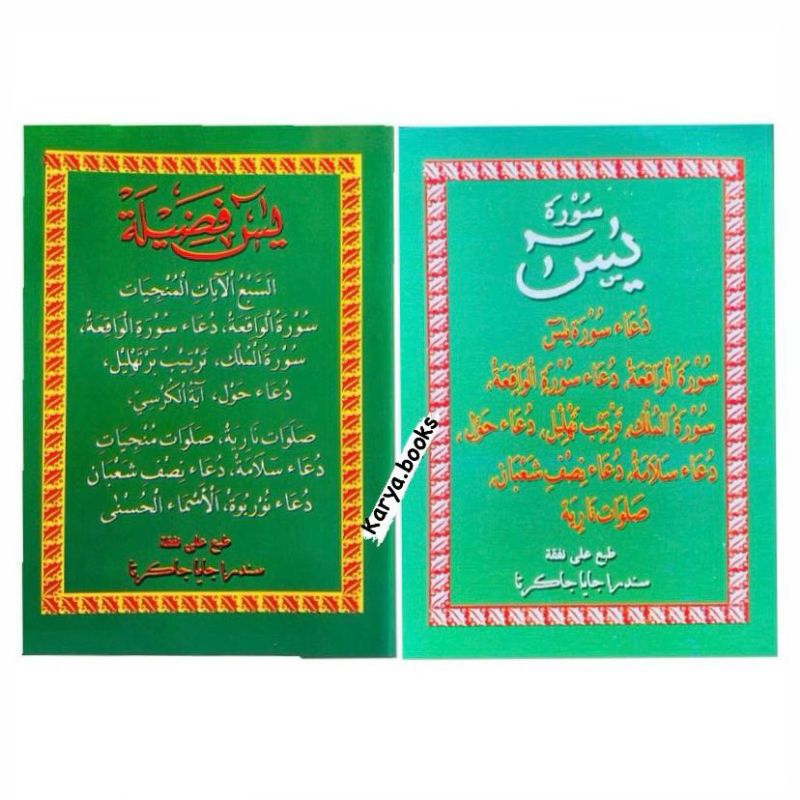 يس فضيلة
السبع الآيات المنجيات
سورة الواقعة، دعاء سورة الواقعة،
سورة الملك، ترتيب برتهليل،
دعاء حول، آية الكرسي،
صلوات نارية، صلوات منجيات
دعاء سلامة، دعاء نصف شعبان
دعاء نوربوة، الأسماء الحسنى
طبع على نفقة
سندرا جايا جاكرتا
Karya.books
سورة
يس
دعاء سورة يس
سورة الواقعة، دعاء سورة الواقعة،
سورة الملك، ترتيب تهليل، دعاء حول،
دعاء سلامة، دعاء نصف شعبان،
صلوات نارية
طبع على نفقة
سندرا جايا جاكرتا